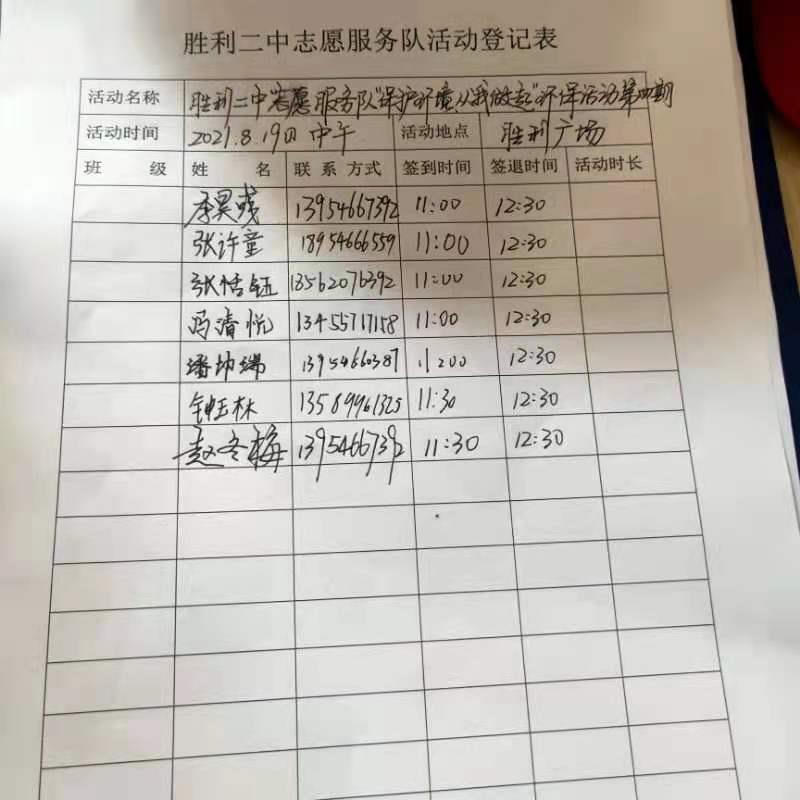 胜利二中志愿服务队活动登记表
活动名称 胜利二中志愿服务队"保护环境从我做起"环保活动第四期
活动时间 2021.8.19日 中午 活动地点 胜利广场
班 级 姓 名 联系方式 签到时间 签退时间 活动时长
李昊彧 13954667392 11:00 12:30
张许童 18954666559 11:00 12:30
张恬钰 13562076392 11:00 12:30
冯清悦 13455717158 11:00 12:30
潘坤瑞 13954660387 11:00 12:30
钟玉林 13589961325 11:30 12:30
赵冬梅 13954667392 11:30 12:30